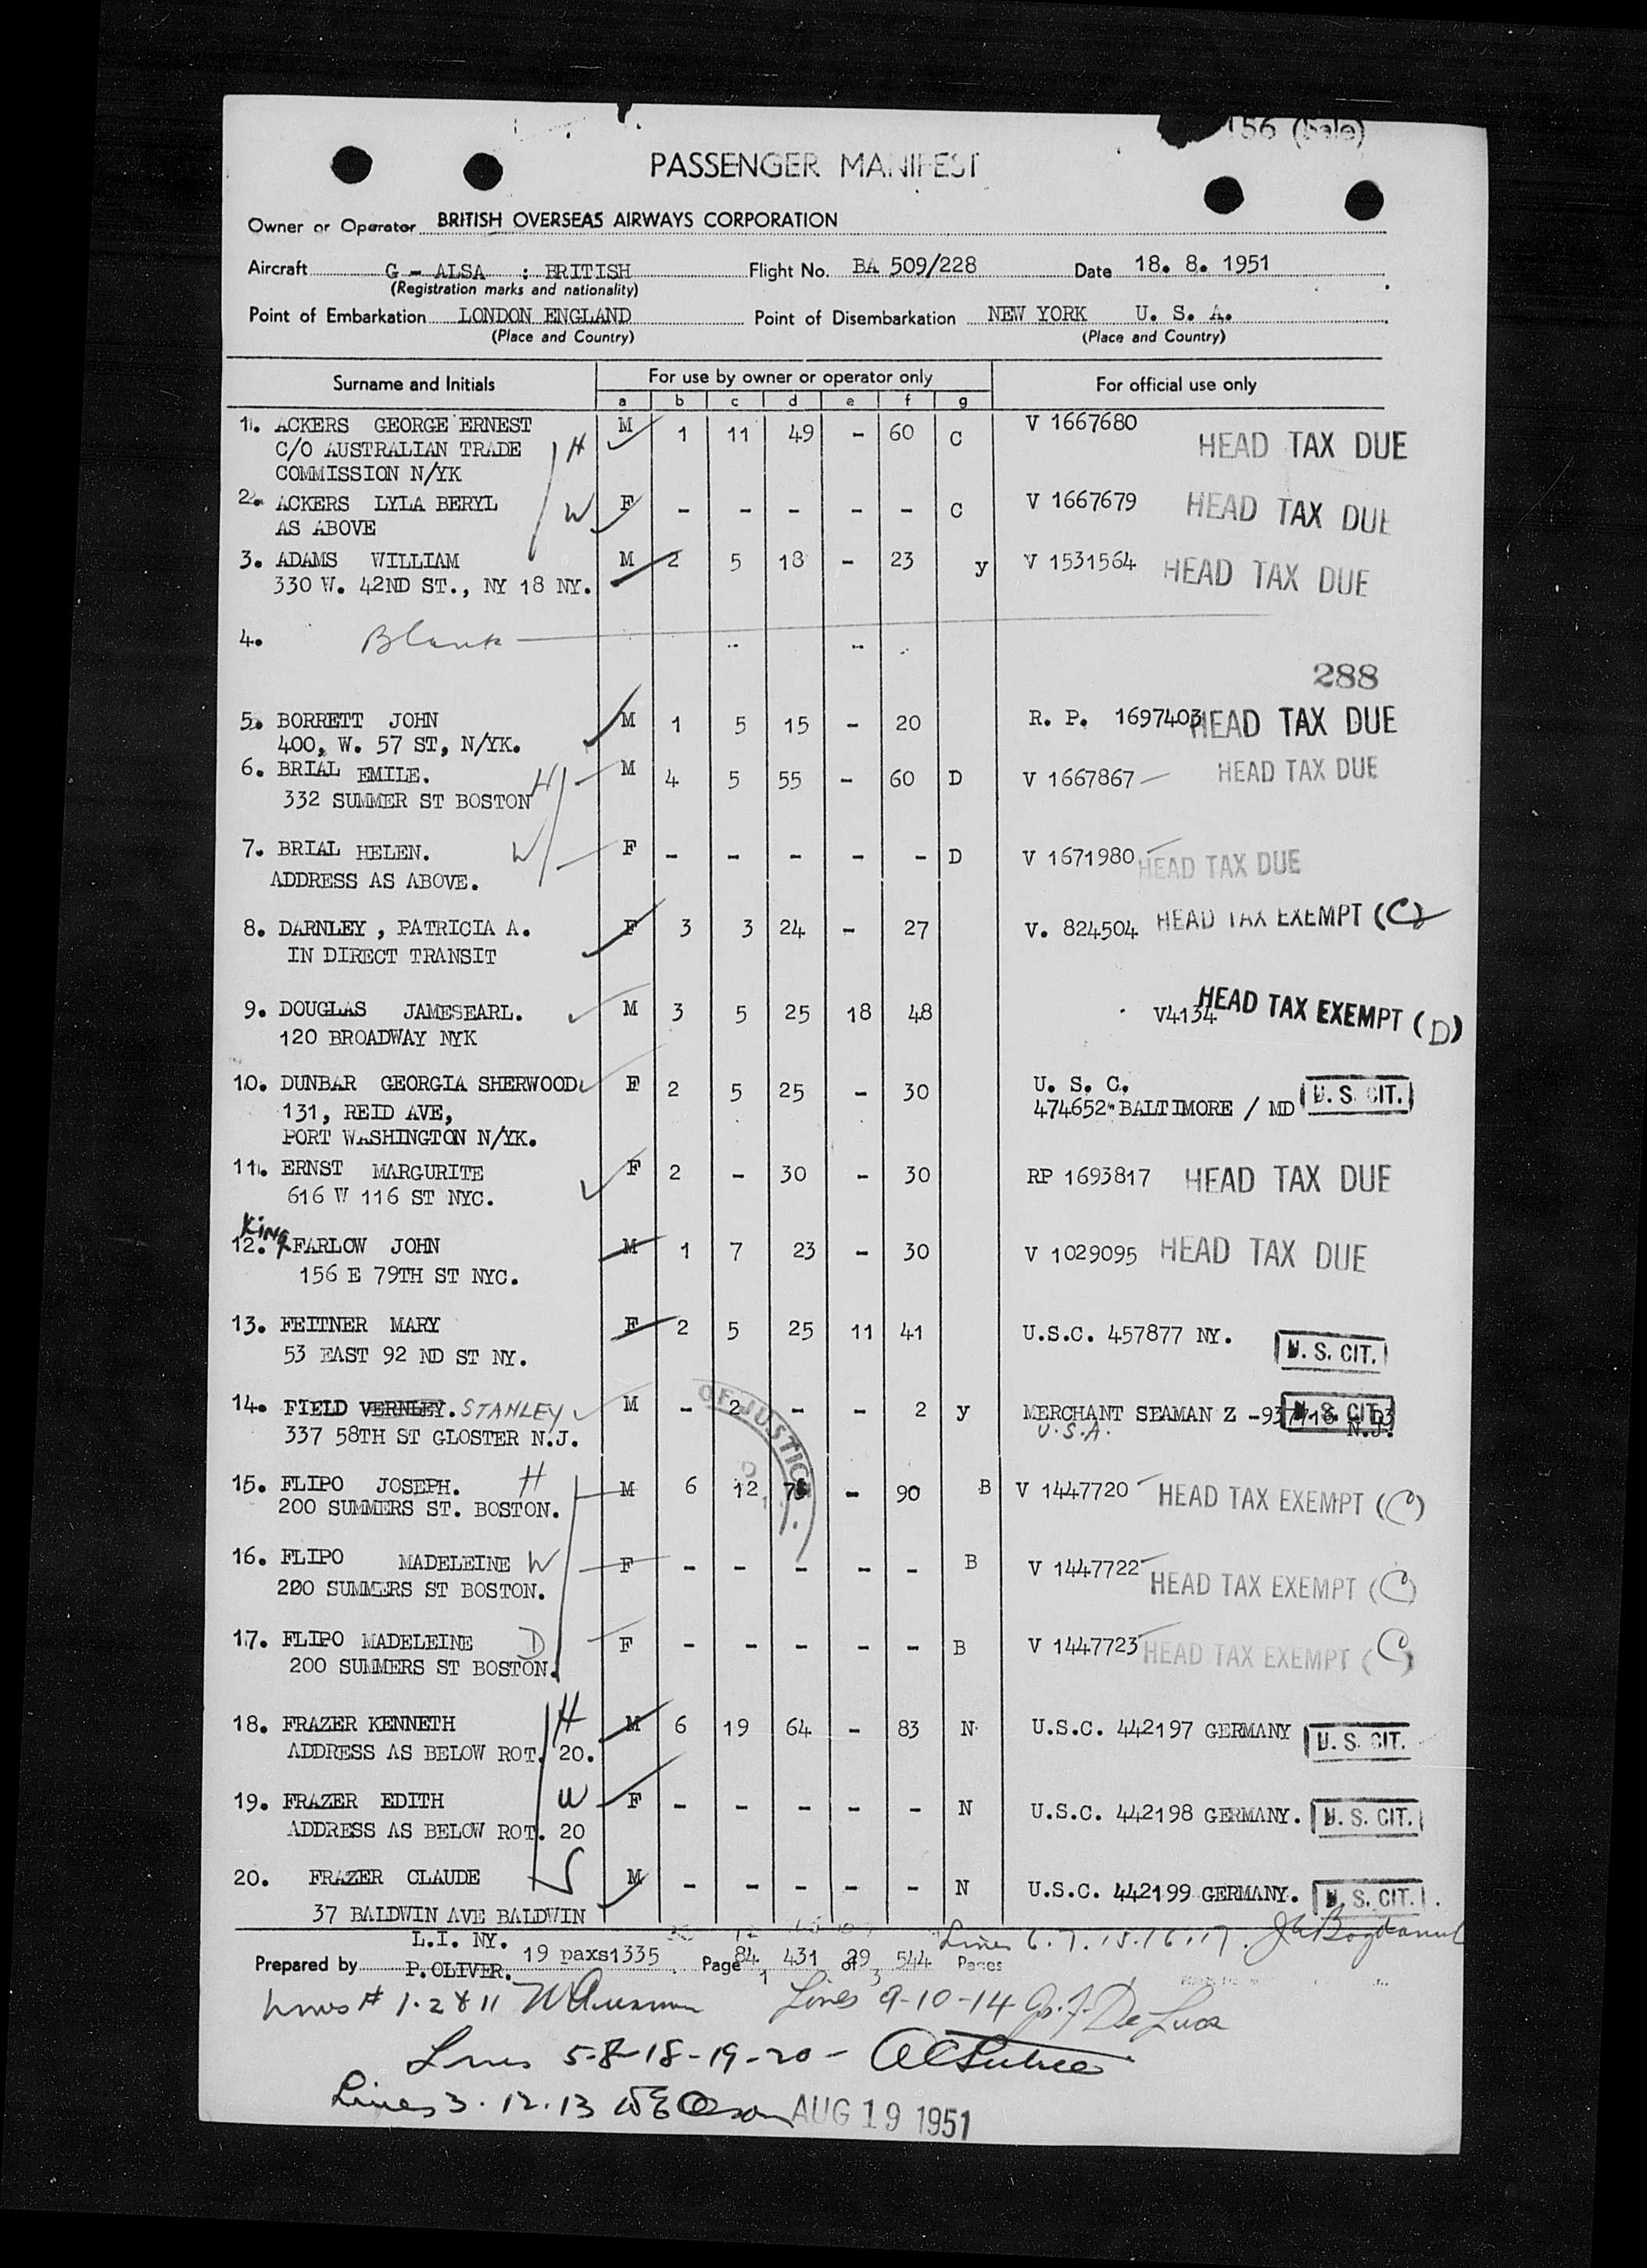 156 (Sale)
PASSENGER MANIFEST
Owner or Operator BRITISH OVERSEAS AIRWAYS CORPORATION
Aircraft G - ALSA : BRITISH Flight No. BA 509/228 Date 18. 8. 1951
(Registration marks and nationality)
Point of Embarkation LONDON ENGLAND Point of Disembarkation NEW YORK U. S. A.
(Place and Country) (Place and Country)
Surname and Initials For use by owner or operator only For official use only
a b c d e f g
1. ACKERS GEORGE ERNEST M 1 11 49 - 60 C V 1667680 HEAD TAX DUE
C/O AUSTRALIAN TRADE H
COMMISSION N/YK
2. ACKERS LYLA BERYL W F - - - - - C V 1667679 HEAD TAX DUE
AS ABOVE
3. ADAMS WILLIAM M 2 5 18 - 23 y V 1531564 HEAD TAX DUE
330 W. 42ND ST., NY 18 NY.
4. Blank
288
5. BORRETT JOHN M 1 5 15 - 20 R. P. 1697403 HEAD TAX DUE
400, W. 57 ST, N/YK.
6. BRIAL EMILE. H M 4 5 55 - 60 D V 1667867 HEAD TAX DUE
332 SUMMER ST BOSTON
7. BRIAL HELEN. W F - - - - - D V 1671980 HEAD TAX DUE
ADDRESS AS ABOVE.
8. DARNLEY , PATRICIA A. F 3 3 24 - 27 V. 824504 HEAD TAX EXEMPT (C)
IN DIRECT TRANSIT
9. DOUGLAS JAMESEARL. M 3 5 25 18 48 V4134 HEAD TAX EXEMPT (D)
120 BROADWAY NYK
10. DUNBAR GEORGIA SHERWOOD. F 2 5 25 - 30 U. S. C.
131, REID AVE, 474652 BALTIMORE / MD U. S. CIT.
PORT WASHINGTON N/YK.
11. ERNST MARGURITE F 2 - 30 - 30 RP 1693817 HEAD TAX DUE
616 W 116 ST NYC.
King
12. FARLOW JOHN M 1 7 23 - 30 V 1029095 HEAD TAX DUE
156 E 79TH ST NYC.
13. FEITNER MARY F 2 5 25 11 41 U.S.C. 457877 NY. U. S. CIT.
53 EAST 92 ND ST NY.
14. FIELD VERNLEY. STANLEY M - 2 - - 2 y MERCHANT SEAMAN Z - U. S. CIT.
337 58TH ST GLOSTER N.J. U.S.A. N.J.
OF JUSTICE
15. FLIPO JOSEPH. H M 6 12 - 90 B V 1447720 HEAD TAX EXEMPT (C)
200 SUMMERS ST. BOSTON.
16. FLIPO MADELEINE W F - - - - - B V 1447722 HEAD TAX EXEMPT (C)
200 SUMMERS ST BOSTON.
17. FLIPO MADELEINE D F - - - - - B V 1447723 HEAD TAX EXEMPT (C)
200 SUMMERS ST BOSTON.
18. FRAZER KENNETH H M 6 19 64 - 83 N U.S.C. 442197 GERMANY U. S. CIT.
ADDRESS AS BELOW ROT. 20.
19. FRAZER EDITH W F - - - - - N U.S.C. 442198 GERMANY. U. S. CIT.
ADDRESS AS BELOW ROT. 20
20. FRAZER CLAUDE S M - - - - - N U.S.C. 442199 GERMANY. U. S. CIT.
37 BALDWIN AVE BALDWIN
L.I. NY. Lines 6.7.15.16.17.
Prepared by P. OLIVER. 19 paxs1335 Page 1 84 431 of 3 29 544 Pages
Lines # 1.2 & 11 Lines 9-10-14 De Luca
Lines 5-8-18-19-20 -
Lines 3.12.13 AUG 19 1951